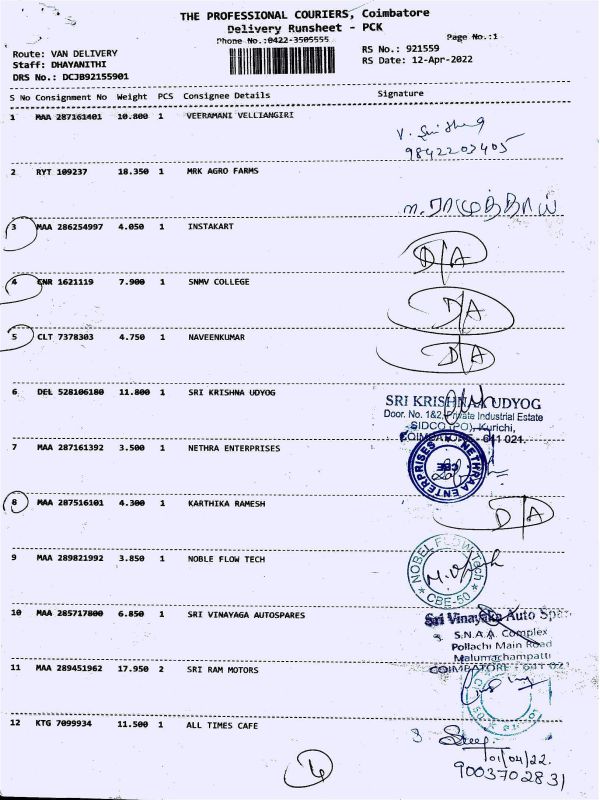 THE PROFESSIONAL COURIERS, Coimbatore
Delivery Runsheet - PCK
Phone No.:0422-3505555
Page No.:1
Route: VAN DELIVERY
RS No.: 921559
Staff: DHAYANITHI
RS Date: 12-Apr-2022
DRS No.: DCJB92155901
S No Consignment No Weight PCS Consignee Details Signature
1 MAA 287161401 10.800 1 VEERAMANI VELLIANGIRI
9842203405
2 RYT 109237 18.350 1 MRK AGRO FARMS
3 MAA 286254997 4.050 1 INSTAKART
D/A
4 CNR 1621119 7.900 1 SNMV COLLEGE
D/A
5 CLT 7378303 4.750 1 NAVEENKUMAR
D/A
6 DEL 528106180 11.800 1 SRI KRISHNA UDYOG
SRI KRISHNA UDYOG
Door. No. 1&2, Private Industrial Estate
SIDCO (PO), Kurichi,
COIMBATORE - 641 021.
7 MAA 287161392 3.500 1 NETHRA ENTERPRISES
NETHRAA ENTERPRISES
CBE
8 MAA 287516101 4.300 1 KARTHIKA RAMESH
D/A
9 MAA 289821992 3.850 1 NOBLE FLOW TECH
NOBEL FLOW Tech
CBE-50
10 MAA 285717800 6.850 1 SRI VINAYAGA AUTOSPARES
Sri Vinayaka Auto
S.N.A.A. Complex
Pollachi Main Road
Malumachampatti
COIMBATORE - 641 021
11 MAA 289451962 17.950 2 SRI RAM MOTORS
12 KTG 7099934 11.500 1 ALL TIMES CAFE
01/04/22.
9003702831